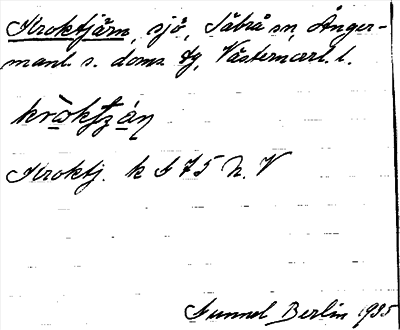 Kroktjärn, sjö, Tåsjö sn, Ånger-
manl. s. doms. tg, Västernorrl. l.
kròktján
Kroktj. k G 75 N. V
Gunnel Berlin 1935